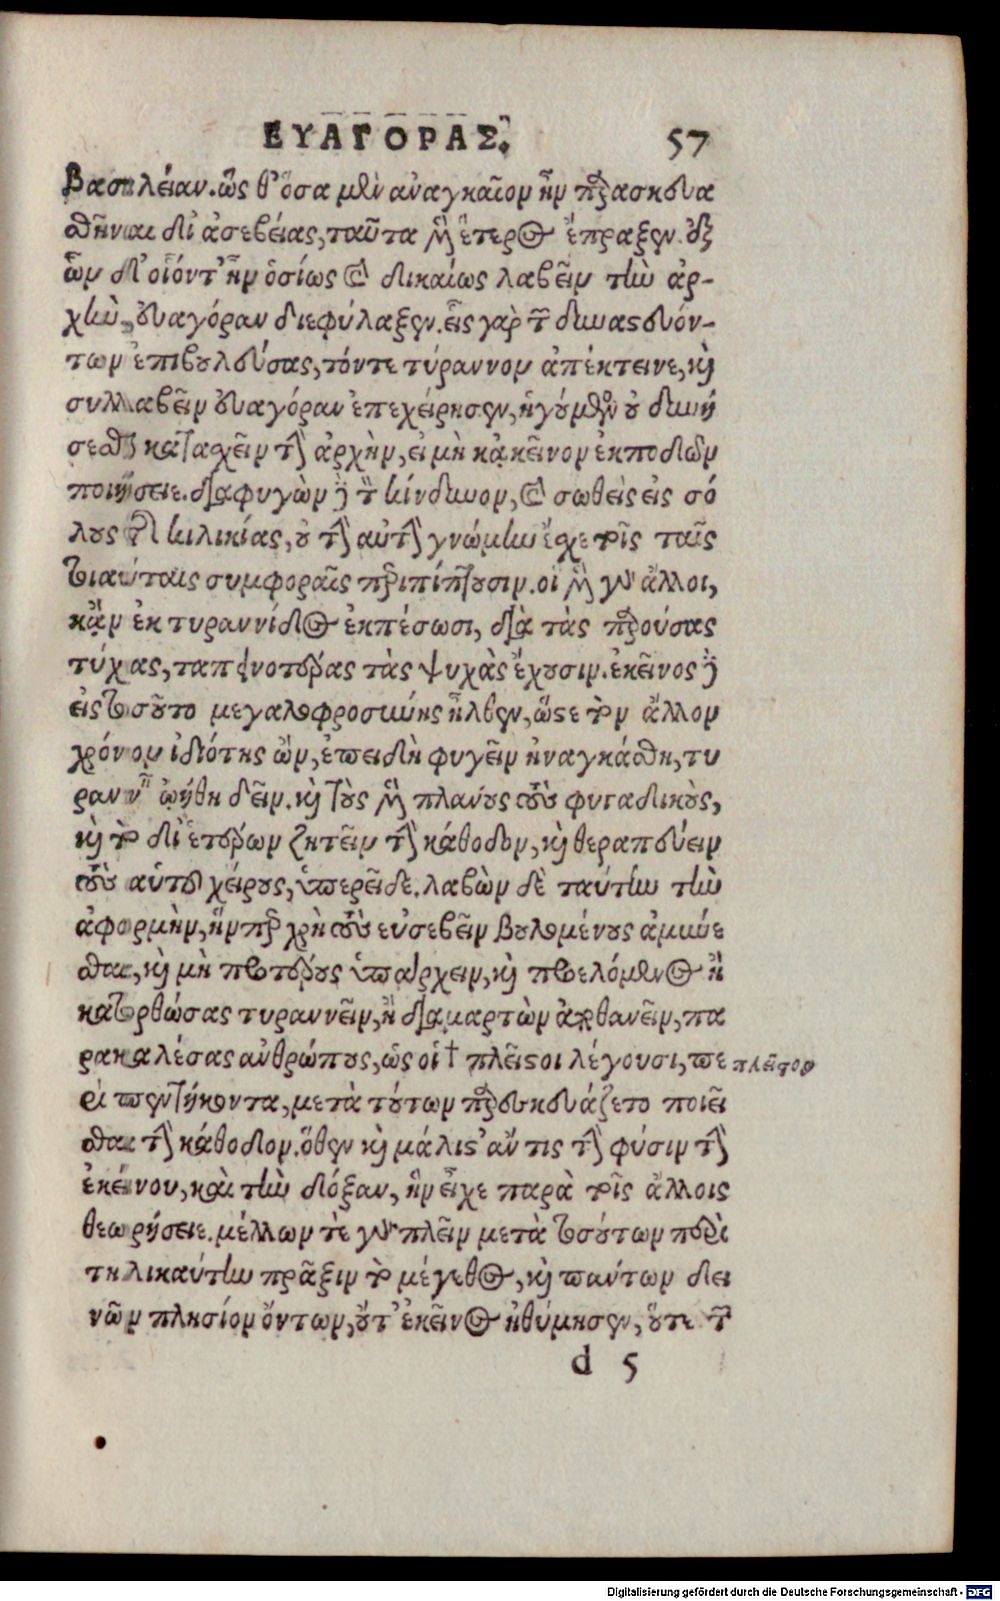 ΕΥΑΓΟΡΑΣ. 57
βασιλείαν. ὥς θ' ὅσα μὲν ἀναγκαῖον ἦν παρασκευα
σθῆναι δι' ἀσεβείας, ταῦτα μὲν ἕτερος ἔπραξεν. ἐξ
ὧν δ' οἷόντ' ἦν ὁσίως καὶ δικαίως λαβεῖν τὴν ἀρ-
χὴν, εὐαγόραν διεφύλαξεν. εἷς γὰρ τῶν δυναστευόν-
των ἐπιβουλεύσας, τόντε τύραννον ἀπέκτεινε, καὶ
συλλαβεῖν εὐαγόραν ἐπεχείρησεν, ἡγούμενος οὐ δυνή
σεσθαι κατασχεῖν τὴν ἀρχὴν, εἰ μὴ κἀκεῖνον ἐκποδὼν
ποιήσειε. διαφυγὼν δὲ τὸν κίνδυνον, καὶ σωθεὶς εἰς σό
λους τῆς κιλικίας, οὐ τὴν αὐτὴν γνώμην ἔσχε τοῖς ταῖς
τοιαύταις συμφοραῖς περιπίπτουσιν. οἱ μὲν γὰρ ἄλλοι,
κἂν ἐκ τυραννίδος ἐκπέσωσι, διὰ τὰς παρούσας
τύχας, ταπεινοτέρας τὰς ψυχὰς ἔχουσιν. ἐκεῖνος δὲ
εἰς τοσοῦτο μεγαλοφροσύνης ἦλθεν, ὥστε τὸν ἄλλον
χρόνον ἰδιότης ὢν, ἐπειδὴ φυγεῖν ἠναγκάσθη, τυ
ραννεῖν ᾠήθη δεῖν. καὶ τοὺς μὲν πλάνους τοὺς φυγαδικοὺς,
καὶ τὸ δι' ἑτέρων ζητεῖν τὴν κάθοδον, καὶ θεραπεύειν
τοὺς αὑτοῦ χείρους, ὑπερεῖδε. λαβὼν δὲ ταύτην τὴν
ἀφορμὴν, ἥνπερ χρὴ τοὺς εὐσεβεῖν βουλομένους ἀμύνε
σθαι, καὶ μὴ προτέρους ὑπάρχειν, καὶ προελόμενος ἢ
κατορθώσας τυραννεῖν, ἢ διαμαρτὼν ἀποθανεῖν, πα
ρακαλέσας ἀνθρώπους, ὡς οἱ † πλεῖστοι λέγουσι, πε πλεῖστον
ρὶ πεντήκοντα, μετὰ τούτων παρεσκευάζετο ποιεῖ
σθαι τὴν κάθοδον. ὅθεν καὶ μάλιστ' ἄν τις τὴν φύσιν τὴν
ἐκείνου, καὶ τὴν δόξαν, ἣν εἶχε παρὰ τοῖς ἄλλοις
θεωρήσειε. μέλλων τε γὰρ πλεῖν μετὰ τοσούτων περὶ
τηλικαύτην πρᾶξιν τὸ μέγεθος, καὶ πάντων δει
νῶν πλησίον ὄντων, οὔτ' ἐκεῖνος ἠθύμησεν, οὔτε τῶν
d 5
Digitalisierung gefördert durch die Deutsche Forschungsgemeinschaft - DFG